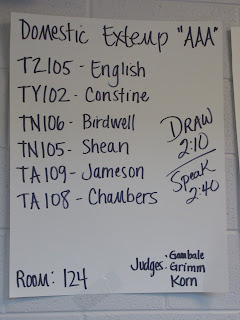 Domestic Extemp "AAA"
TZ105 - English
TY102 - Constine
TN106 - Birdwell
TN105 - Shean
TA109 - Jameson
TA108 - Chambers
DRAW
2:10
Speak
2:40
Room: 124
Judges: • Gambale
• Grimm
Korn